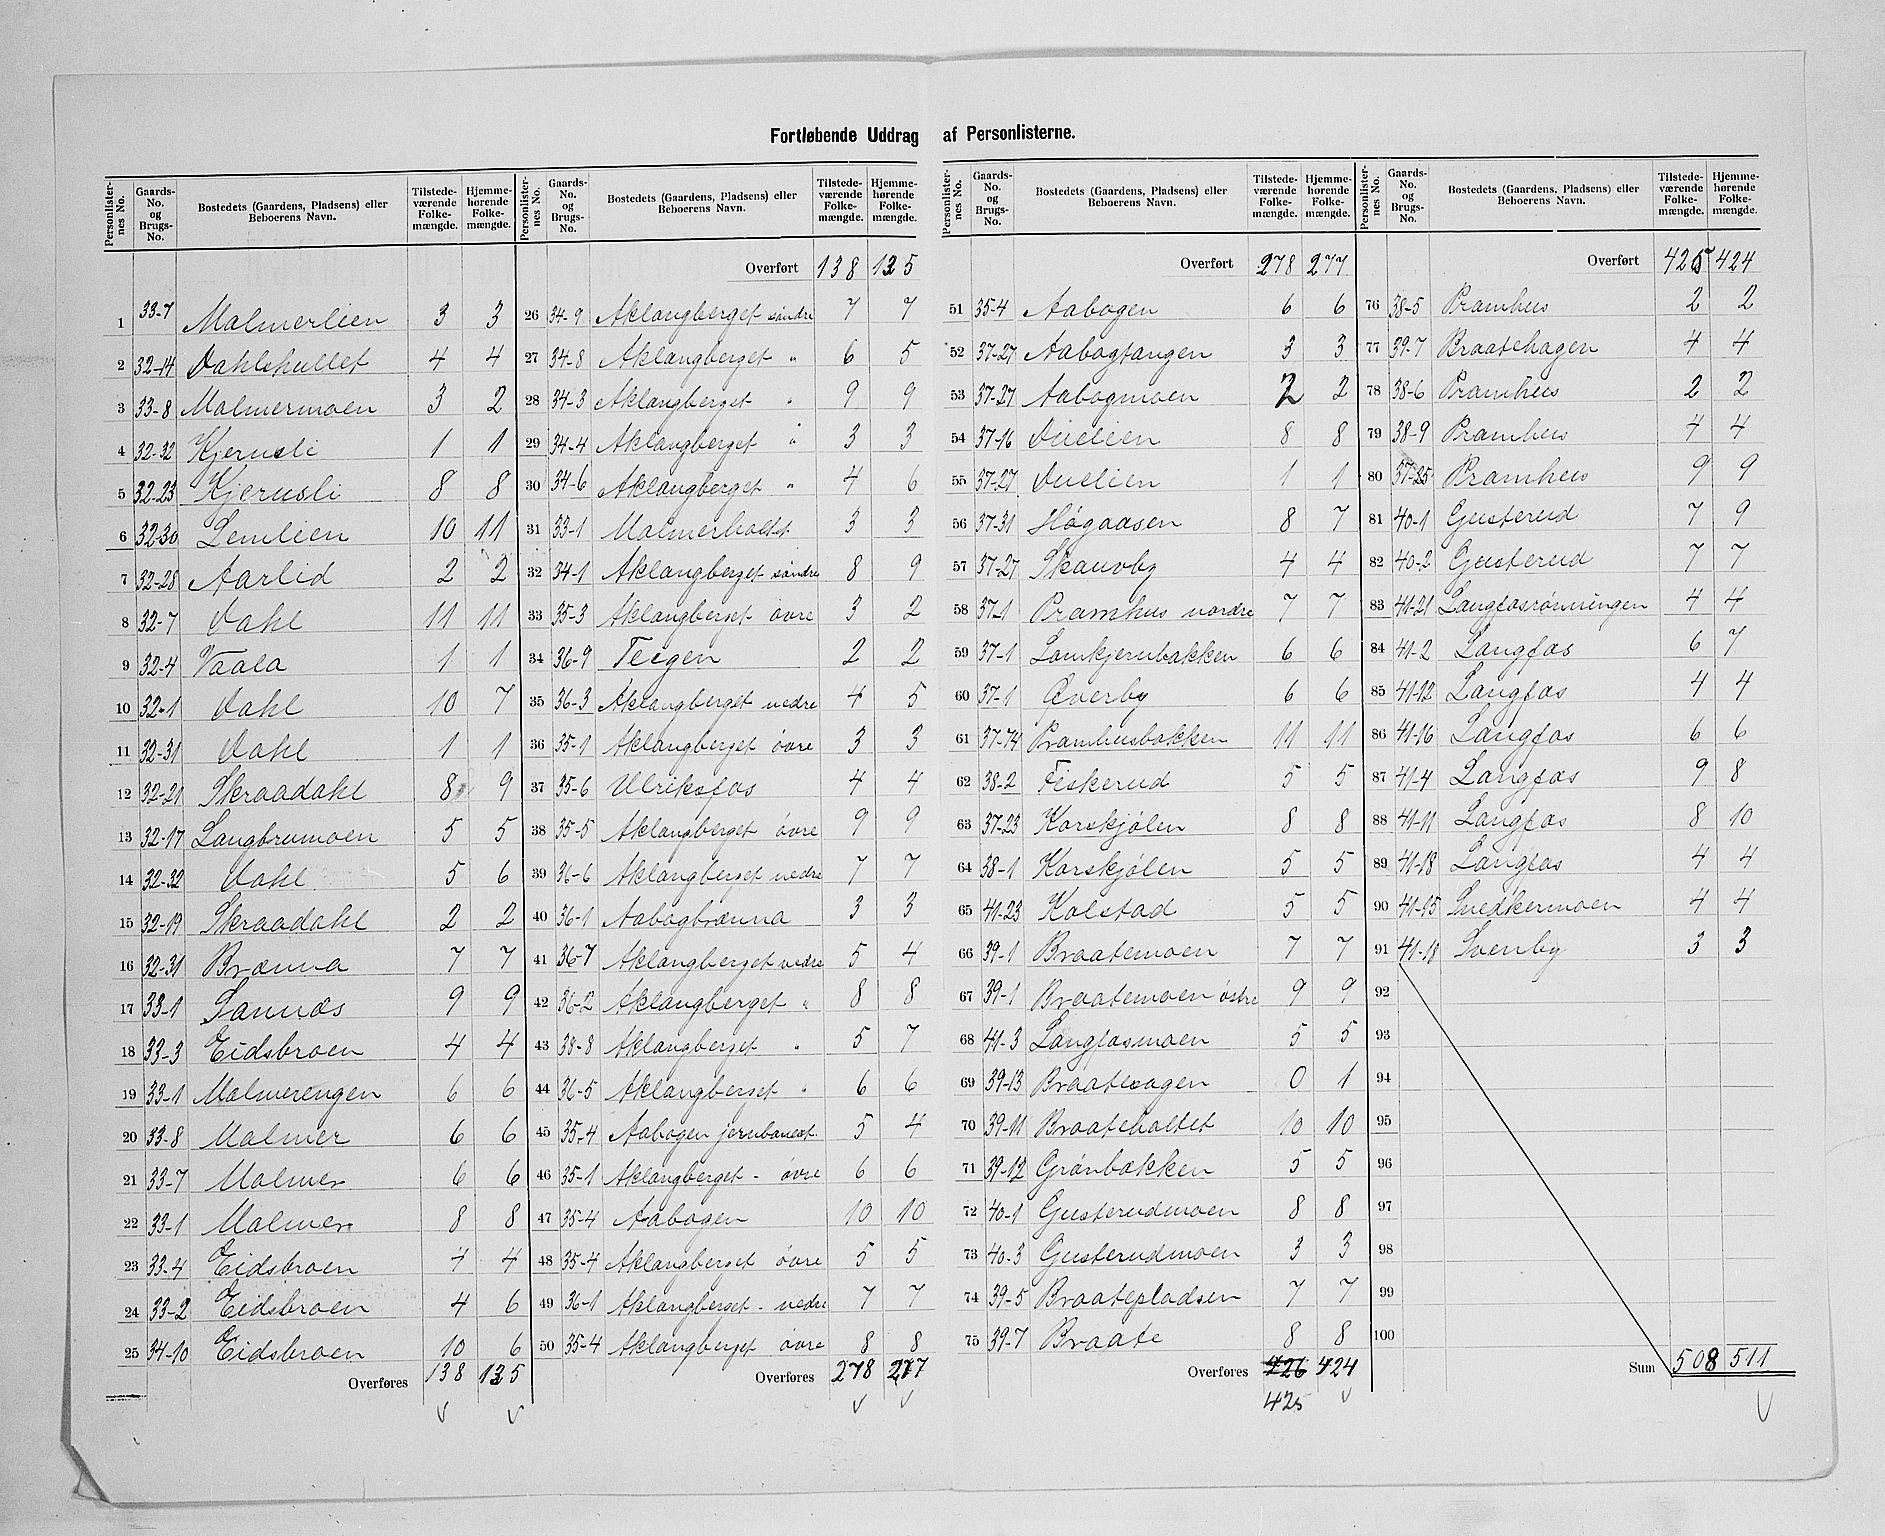 Fortløbende Uddrag af Personlisterne.
Personlisternes No. Gaards-No. og Brugs-No. Bostedets (Gaardens, Pladsens) eller Beboerens Navn. Tilstedeværende Folkemængde. Hjemmehørende Folkemængde.
1 33-7 Malmerlien 3 3
2 32-14 Dahlshullet 4 4
3 33-8 Malmermoen 3 2
4 32-32 Kjernsli 1 1
5 32-23 Kjernsli 8 8
6 32-30 Lemlien 10 11
7 32-28 Aarlid 2 2
8 32-7 Dahl 11 11
9 32-4 Vaala 1 1
10 32-1 Dahl 10 7
11 32-31 Dahl 1 1
12 32-21 Skraadahl 8 9
13 32-17 Langbrumoen 5 5
14 32-32 Dahl 5 6
15 32-19 Skraadahl 2 2
16 32-31 Brænna 7 7
17 33-1 Sannæs 9 9
18 33-3 Eidsbroen 4 4
19 33-1 Malmerengen 6 6
20 33-8 Malmer 6 6
21 33-7 Malmer 6 6
22 33-1 Malmer 8 8
23 33-4 Eidsbroen 4 4
24 33-2 Eidsbroen 4 6
25 34-10 Eidsbroen 10 6
Overføres 138 135
Personlisternes No. Gaards-No. og Brugs-No. Bostedets (Gaardens, Pladsens) eller Beboerens Navn. Tilstedeværende Folkemængde. Hjemmehørende Folkemængde.
Overført 138 135
26 34-9 Aklangberget söndre 7 7
27 34-8 Aklangberget " 6 5
28 34-3 Aklangberget " 9 9
29 34-4 Aklangberget " 3 3
30 34-6 Aklangberget " 4 6
31 33-1 Malmerholdt 3 3
32 34-1 Aklangberget söndre 8 9
33 35-3 Aklangberget övre 3 2
34 36-9 Teigen 2 2
35 36-3 Aklangberget nedre 4 5
36 35-1 Aklangberget övre 3 3
37 35-6 Ulriksfos 4 4
38 35-5 Aklangberget övre 9 9
39 36-6 Aklangberget nedre 7 7
40 36-1 Aabogbrænna 3 3
41 36-7 Aklangberget nedre 5 4
42 36-2 Aklangberget " 8 8
43 38-8 Aklangberget " 5 7
44 36-5 Aklangberget " 6 6
45 35-4 Aabogen jernbanest. 5 4
46 35-1 Aklangberget - övre 6 6
47 35-4 Aabogen 10 10
48 35-4 Aklangberget övre 5 5
49 36-1 Aklangberget - nedre 7 7
50 35-4 Aklangberget övre 8 8
Overføres 278 277
Personlisternes No. Gaards-No. og Brugs-No. Bostedets (Gaardens, Pladsens) eller Beboerens Navn. Tilstedeværende Folkemængde. Hjemmehørende Folkemængde.
Overført 278 277
51 35-4 Aabogen 6 6
52 37-27 Aabogtangen 3 3
53 37-27 Aabogmoen 2 2
54 37-16 Duelien 8 8
55 37-27 Duelien 1 1
56 37-31 Høgaasen 8 7
57 37-27 Skauvby 4 4
58 37-1 Pramhus nordre 7 7
59 37-1 Lomkjernbakken 6 6
60 37-1 Øverby 6 6
61 37-74 Pramhusbakken 11 11
62 38-2 Fiskerud 5 5
63 37-23 Korskjølen 8 8
64 38-1 Korskjølen 5 5
65 41-23 Kolstad 5 5
66 39-1 Braatemoen 7 7
67 39-1 Braatemoen östre 9 9
68 41-3 Langfosmoen 5 5
69 39-13 Braatesagen 0 1
70 39-11 Braateholtet 10 10
71 39-12 Grønbækken 5 5
72 40-1 Gusterudmoen 8 8
73 40-3 Gusterudmoen 3 3
74 39-5 Braatepladsen 7 7
75 39-7 Braate 8 8
Overføres 426 424
425
Personlisternes No. Gaards-No. og Brugs-No. Bostedets (Gaardens, Pladsens) eller Beboerens Navn. Tilstedeværende Folkemængde. Hjemmehørende Folkemængde.
Overført 425 424
76 38-5 Pramhus 2 2
77 39-7 Braatehagen 4 4
78 38-6 Pramhus 2 2
79 38-9 Pramhus 4 4
80 37-25 Pramhus 9 9
81 40-1 Gusterud 7 9
82 40-2 Gusterud 7 7
83 41-21 Langfosrønningen 4 4
84 41-2 Langfos 6 7
85 41-12 Langfos 4 4
86 41-16 Langfos 6 6
87 41-4 Langfos 9 8
88 41-11 Langfos 8 10
89 41-18 Langfos 4 4
90 41-15 Snedkermoen 4 4
91 41-18 Svenby 3 3
92
93
94
95
96
97
98
99
100
Sum 508 511